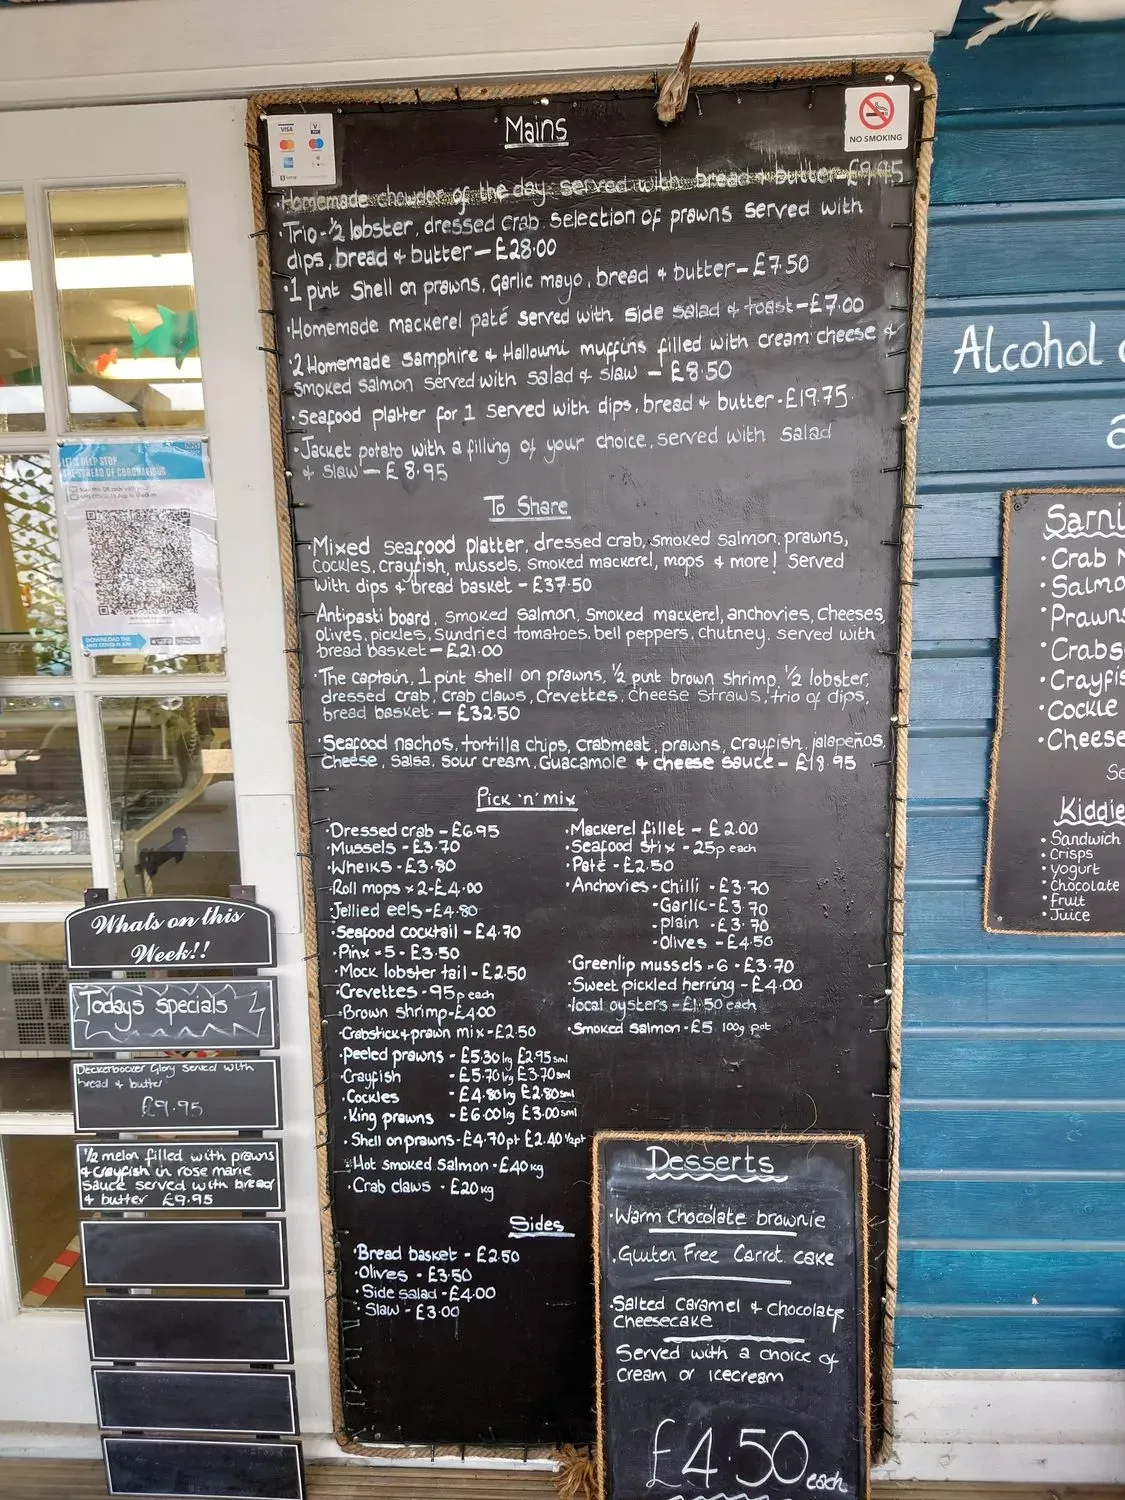 Mains
VISA
V
PAY
NO SMOKING
·Homemade chowder of the day served with bread + butter-£9.95
·Trio-½ lobster, dressed crab selection of prawns served with
dips, bread + butter-£28.00
·1 pint Shell on prawns, Garlic mayo, bread + butter-£7.50
·Homemade mackerel paté served with side salad + toast-£7.00
·2 Homemade samphire + Halloumi muffins filled with cream cheese +
smoked salmon served with salad + slaw - £8.50
·Seafood platter for 1 served with dips, bread + butter-£19.75
·Jacket potato with a filling of your choice, served with salad
+ slaw - £8.95
To Share
·Mixed seafood platter, dressed crab, smoked salmon, prawns,
cockles, crayfish, mussels, smoked mackerel, mops + more! Served
with dips + bread basket - £37.50
·Antipasti board, smoked salmon, smoked mackerel, anchovies, cheeses,
olives, pickles, sundried tomatoes, bell peppers, chutney, served with
bread basket-£21.00
·The captain, 1 pint shell on prawns, ½ pint brown shrimp, ½ lobster,
dressed crab, crab claws, crevettes, cheese straws, trio of dips,
bread basket - £32.50
·Seafood nachos, tortilla chips, crabmeat, prawns, crayfish, jalapeños,
cheese, salsa, sour cream, Guacamole + cheese sauce - £18.95
Pick 'n' mix
·Dressed crab - £6.95
·Mussels - £3.70
·Whelks - £3.80
·Roll mops x2-£4.00
·Jellied eels-£4.80
·Seafood cocktail - £4.70
·Pinx x5 - £3.50
·Mock lobster tail - £2.50
·Crevettes - 95p each
·Brown shrimp-£4.00
·Crabstick+prawn mix-£2.50
·Peeled prawns - £5.30lrg £2.95sml
·Crayfish - £5.70lrg £3.70sml
·Cockles - £4.80lrg £2.80sml
·King prawns - £6.00lrg £3.00sml
·Shell on prawns-£4.70pt £2.40½pt
·Hot smoked salmon-£40kg
·Crab claws - £20kg
·Mackerel fillet - £2.00
·Seafood stix - 25p each
·Paté - £2.50
·Anchovies - Chilli - £3.70
-Garlic-£3.70
-plain - £3.70
-Olives - £4.50
·Greenlip mussels x6 - £3.70
·Sweet pickled herring - £4.00
·local oysters - £1.50 each
·Smoked salmon-£5 100g pot
Sides
·Bread basket - £2.50
·Olives - £3.50
·Side salad-£4.00
·Slaw - £3.00
Desserts
·Warm Chocolate brownie
·Gluten Free Carrot cake
·Salted Caramel + Chocolate
Cheesecake
Served with a choice of
cream or icecream
£4.50 each
LET'S HELP STOP
THE SPREAD OF CORONAVIRUS
NHS
DOWNLOAD THE
NHS COVID-19 APP
Whats on this
Week!!
Todays specials
Deckerbocker Glory served with
bread + butter
£9.95
½ melon filled with prawns
+ crayfish in rose marie
sauce served with bread
+ butter £9.95
Alcohol
Sarni
·Crab
·Salmo
·Prawns
·Crabs
·Crayfis
·Cockle
·Cheese
Se
Kiddie
·Sandwich
·Crisps
·yogurt
·Chocolate
·Fruit
·Juice